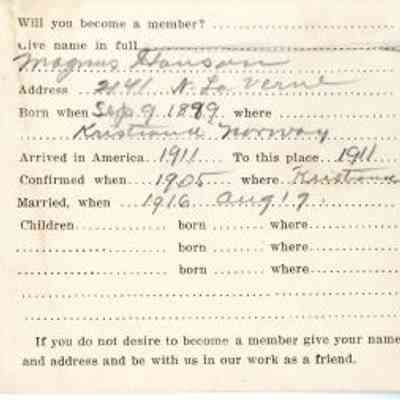 Will you become a member?
Give name in full
Magnus Hanson
Address 2141 N. La Verne
Born when Sep 9 1889 where
Kristiana Norway
Arrived in America 1911 To this place 1911
Confirmed when 1905 where Kristiana
Married, when 1916 Aug 19
Children born where
born where
born where
If you do not desire to become a member give your name
and address and be with us in our work as a friend.